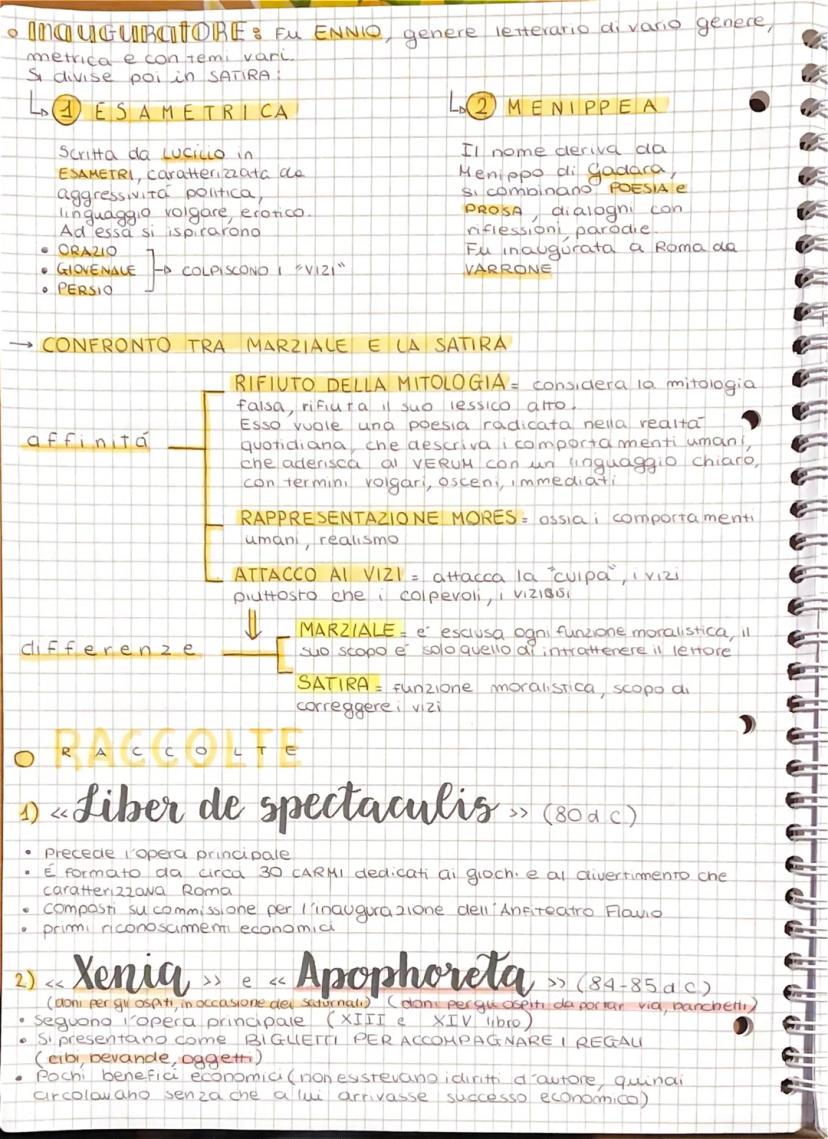 INAUGURATORE: Fu ENNIO, genere letterario di vario genere,
metrica e con temi vari.
Si divise poi in SATIRA:
1 ESAMETRICA
Scritta da LUCILIO in
ESAMETRI, caratterizzata da
aggressività politica,
linguaggio volgare, erotico.
Ad essa si ispirarono
• ORAZIO
• GIOVENALE → COLPISCONO I "VIZI"
• PERSIO
2 MENIPPEA
Il nome deriva da
Menippo di Gadara,
si combinano POESIA e
PROSA, dialoghi con
riflessioni, parodie.
Fu inaugurata a Roma da
VARRONE
→ CONFRONTO TRA MARZIALE E LA SATIRA
affinità
RIFIUTO DELLA MITOLOGIA = considera la mitologia
falsa, rifiuta il suo lessico alto.
Esso vuole una poesia radicata nella realtà
quotidiana, che descriva i comportamenti umani,
che aderisca al VERUM con un linguaggio chiaro,
con termini volgari, osceni, immediati
RAPPRESENTAZIONE MORES = ossia i comportamenti
umani, realismo
ATTACCO AI VIZI = attacca la "culpa", i vizi
piuttosto che i colpevoli, i viziosi
differenze
MARZIALE = e' esclusa ogni funzione moralistica, il
suo scopo e' solo quello di intrattenere il lettore
SATIRA = funzione moralistica, scopo di
correggere i vizi
RACCOLTE
1) « Liber de spectaculis » (80 d C)
• Precede l'opera principale
• É formato da circa 30 CARMI dedicati ai giochi e al divertimento che
caratterizzava Roma
• composti su commissione per l'inaugurazione dell'Anfiteatro Flavio
• primi riconoscimenti economici
2) « Xenia » e « Apophoreta » (84-85 d C)
(doni per gli ospiti, in occasione dei saturnali) (doni per gli ospiti da portar via, banchetti)
• Seguono l'opera principale (XIII e XIV libro)
• Si presentano come BIGLIETTI PER ACCOMPAGNARE I REGALI
(cibi, bevande, oggetti)
• Pochi benefici economici (non esistevano i diritti d'autore, quindi
circolavano senza che a lui arrivasse successo economico)